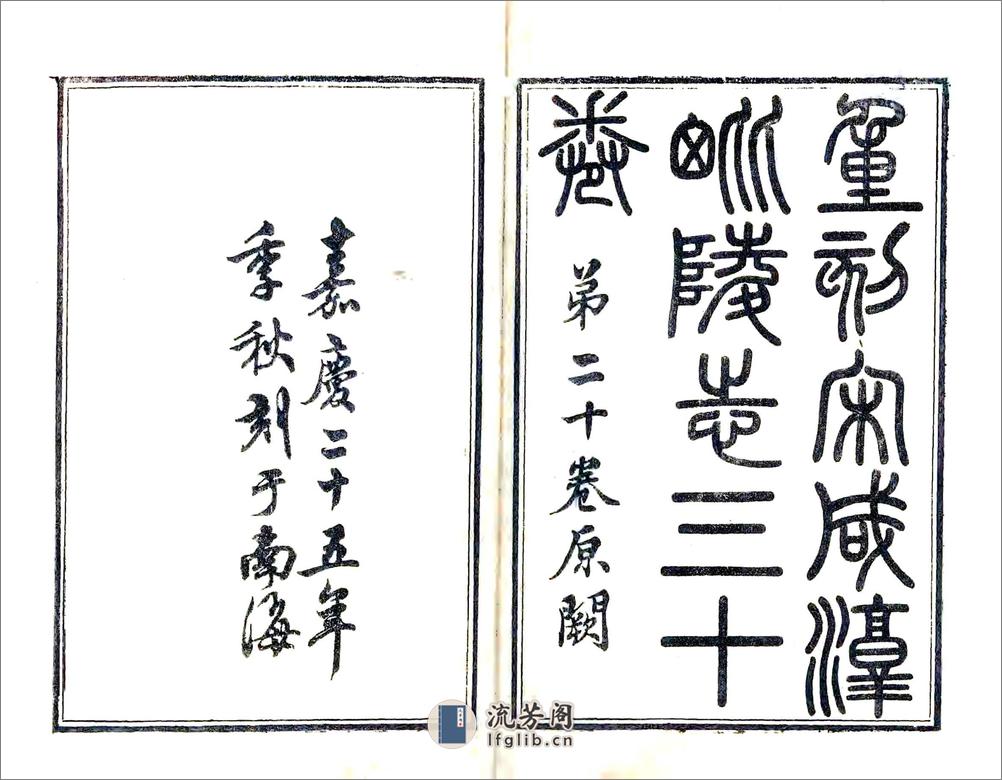 重刻宋咸淳
毗陵志三十
卷
弟二十卷原闕
嘉慶二十五年
季秋刻于南海
流芳阁
lfglib.cn